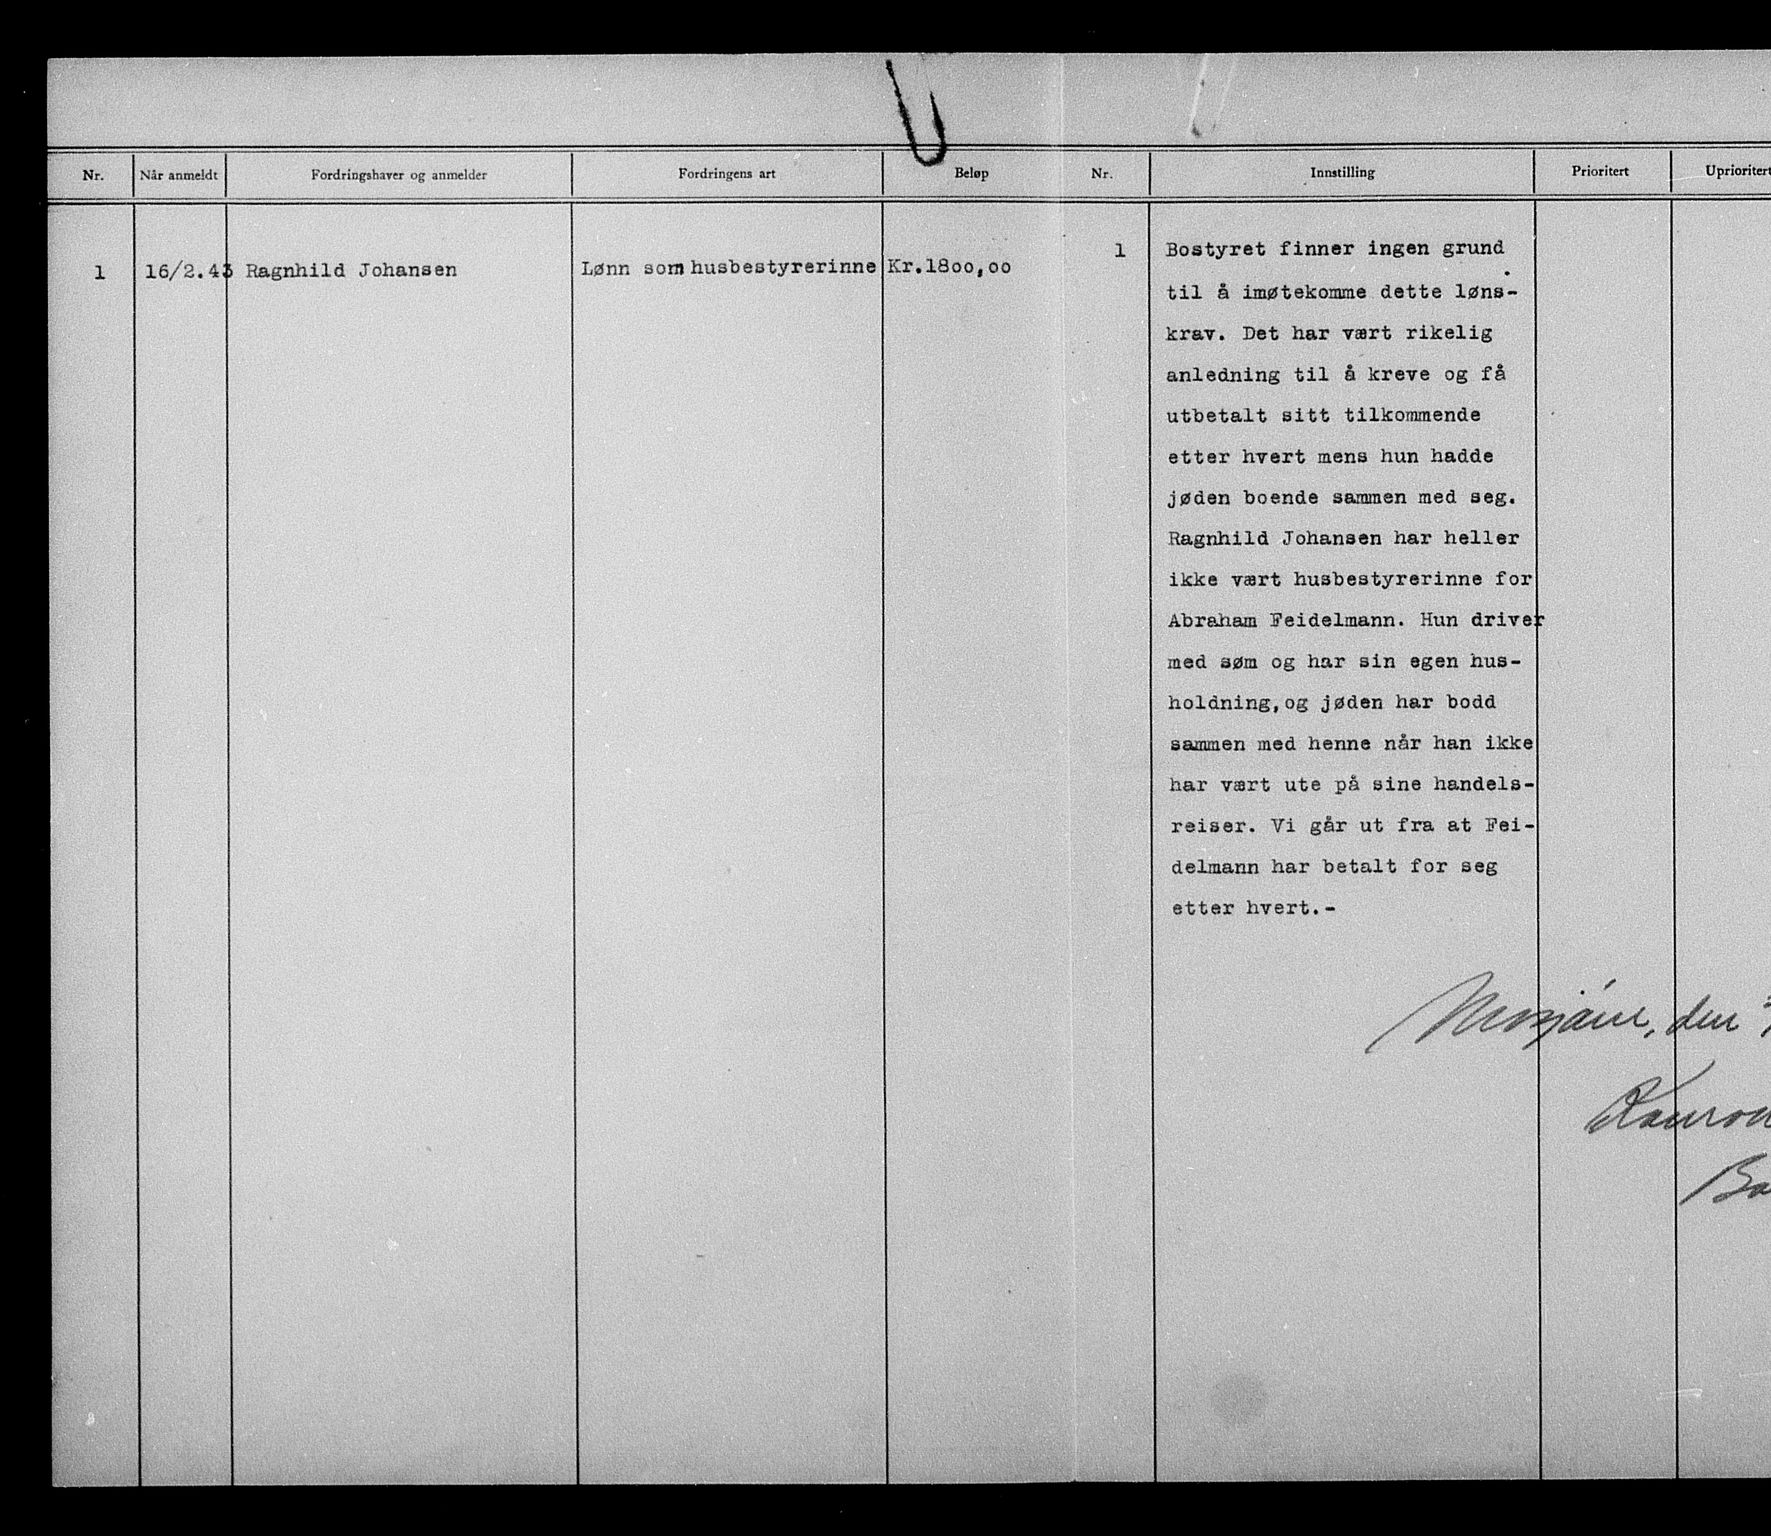 Nr. Når anmeldt Fordringshaver og anmelder Fordringens art Beløp Nr. Innstilling Prioritert Uprioritert
1 16/2.43 Ragnhild Johansen Lønn som husbestyrerinne Kr.18oo,oo
1 Bostyret finner ingen grund
til å imøtekomme dette løns-
krav. Det har vært rikelig
anledning til å kreve og få
utbetalt sitt tilkommende
etter hvert mens hun hadde
jøden boende sammen med seg.
Ragnhild Johansen har heller
ikke vært husbestyrerinne for
Abraham Feidelmann. Hun driver
med søm og har sin egen hus-
holdning,og jøden har bodd
sammen med henne når han ikke
har vært ute på sine handels-
reiser. Vi går ut fra at Fei-
delmann har betalt for seg
etter hvert.-
Mosjøen, den